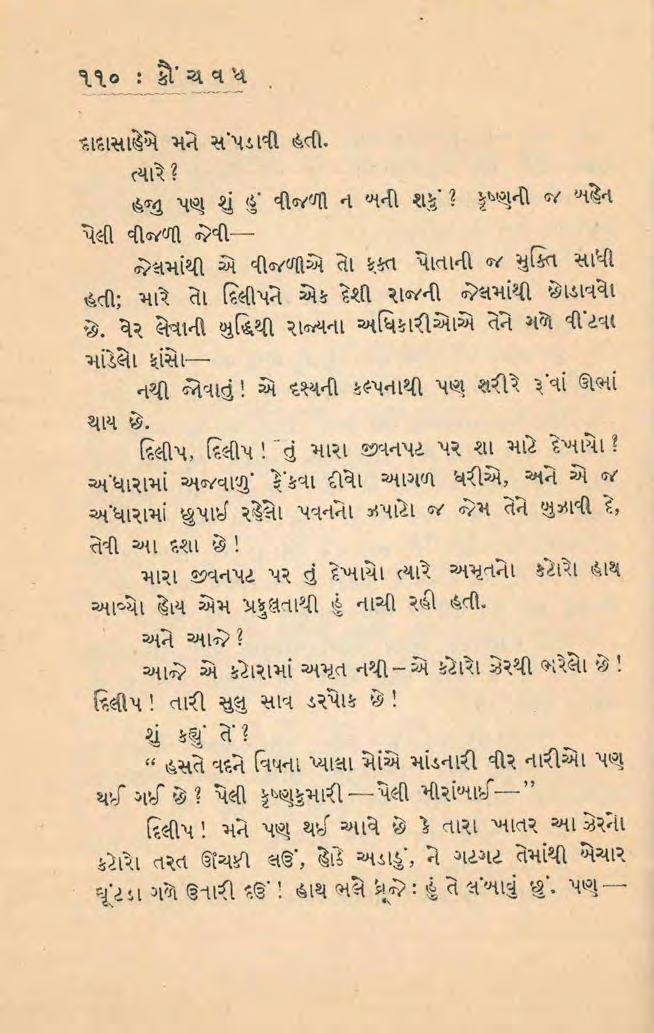 ૧૧૦ : ક્રૌંચવધ
દાદાસાહેબે મને સંપડાવી હતી.
ત્યારે?
હજુ પણ શું હું વીજળી ન બની શકું? કૃષ્ણની જ બહેન
પેલી વીજળી જેવી—
જેલમાંથી એ વીજળીએ તો ફક્ત પોતાની જ મુક્તિ સાધી
હતી; મારે તો દિલીપને એક દેશી રાજની જેલમાંથી છોડાવવો
છે. વેર લેવાની બુદ્ધિથી રાજ્યના અધિકારીઓએ તેને ગળે વીંટવા
માંડેલો ફાંસો—
નથી જોવાતું! એ દૃશ્યની કલ્પનાથી પણ શરીરે રૂંવાં ઊભાં
થાય છે.
દિલીપ, દિલીપ! તું મારા જીવનપટ પર શા માટે દેખાયો?
અંધારામાં અજવાળું ફેંકવા દીવો આગળ ધરીએ, અને એ જ
અંધારામાં છુપાઈ રહેલો પવનનો ઝપાટો જ જેમ તેને બુઝાવી દે,
તેવી આ દશા છે!
મારા જીવનપટ પર તું દેખાયો ત્યારે અમૃતનો કટોરો હાથ
આવ્યો હોય એમ પ્રફુલ્લતાથી હું નાચી રહી હતી.
અને આજે?
આજે એ કટોરામાં અમૃત નથી – એ કટોરો ઝેરથી ભરેલો છે!
દિલીપ! તારી સુલુ સાવ ડરપોક છે!
શું કહ્યું તેં?
“ હસતે વદને વિષના પ્યાલા મોંએ માંડનારી વીર નારીઓ પણ
થઈ ગઈ છે? પેલી કૃષ્ણકુમારી — પેલી મીરાંબાઈ—”
દિલીપ! મને પણ થઈ આવે છે કે તારા ખાતર આ ઝેરનો
કટોરો તરત ઊંચકી લઉં, હોઠે અડાડું, ને ગટગટ તેમાંથી બેચાર
ઘૂંટડા ગળે ઉતારી દઉં! હાથ ભલે ધ્રૂજે: હું તે લંબાવું છું. પણ —